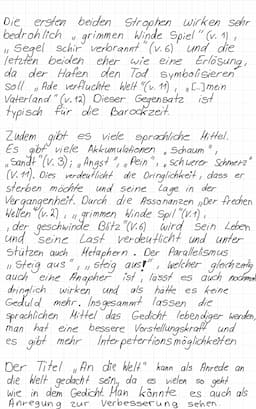 Die ersten beiden Strophen wirken sehr
bedrohlich „grimmen Winde Spiel" (v. 1),
„Segel schir verbrannt" (v. 6) und die
letzten beiden eher wie eine Erlösung,
da der Hafen den Tod symbolisieren
soll „Ade verfluchte Welt" (v. 11), „[..] mein
Vaterland" (v. 12) Dieser Gegensatz ist
typisch für die Barockzeit.
Zudem gibt es viele sprachliche Mittel.
Es gibt viele Akkumulationen „Schaum",
„Sandt" (v. 3); „Angst", „Pein", „schwerer Schmerz"
(v. 11). Dies verdeutlicht die Dringlichkeit, dass er
sterben möchte und seine Lage in der
Vergangenheit. Durch die Assonanzen „Der frechen
Wellen" (v. 2), „grimmen Winde Spil" (v. 1),
„der geschwinde Blitz" (v. 6) wird sein Leben
und seine Last verdeutlicht und unter
stützen auch Metaphern. Der Parallelismus
„Steig aus", „steig aus!", welcher gleichzeitig
auch eine Anapher ist, lässt es auch nochmal
dringlich wirken und als hätte es keine
Geduld mehr. Insgesammt lassen die
sprachlichen Mittel das Gedicht lebendiger werden,
man hat eine bessere Vorstellungskraft und
es gibt mehr Interpetertionsmöglichkeiten
Der Titel „An die Welt" kann als Anrede an
die Welt gedacht sein, da es vielen so geht
wie in dem Gedicht. Man könnte es auch als
Anregung zur Verbesserung sehen.